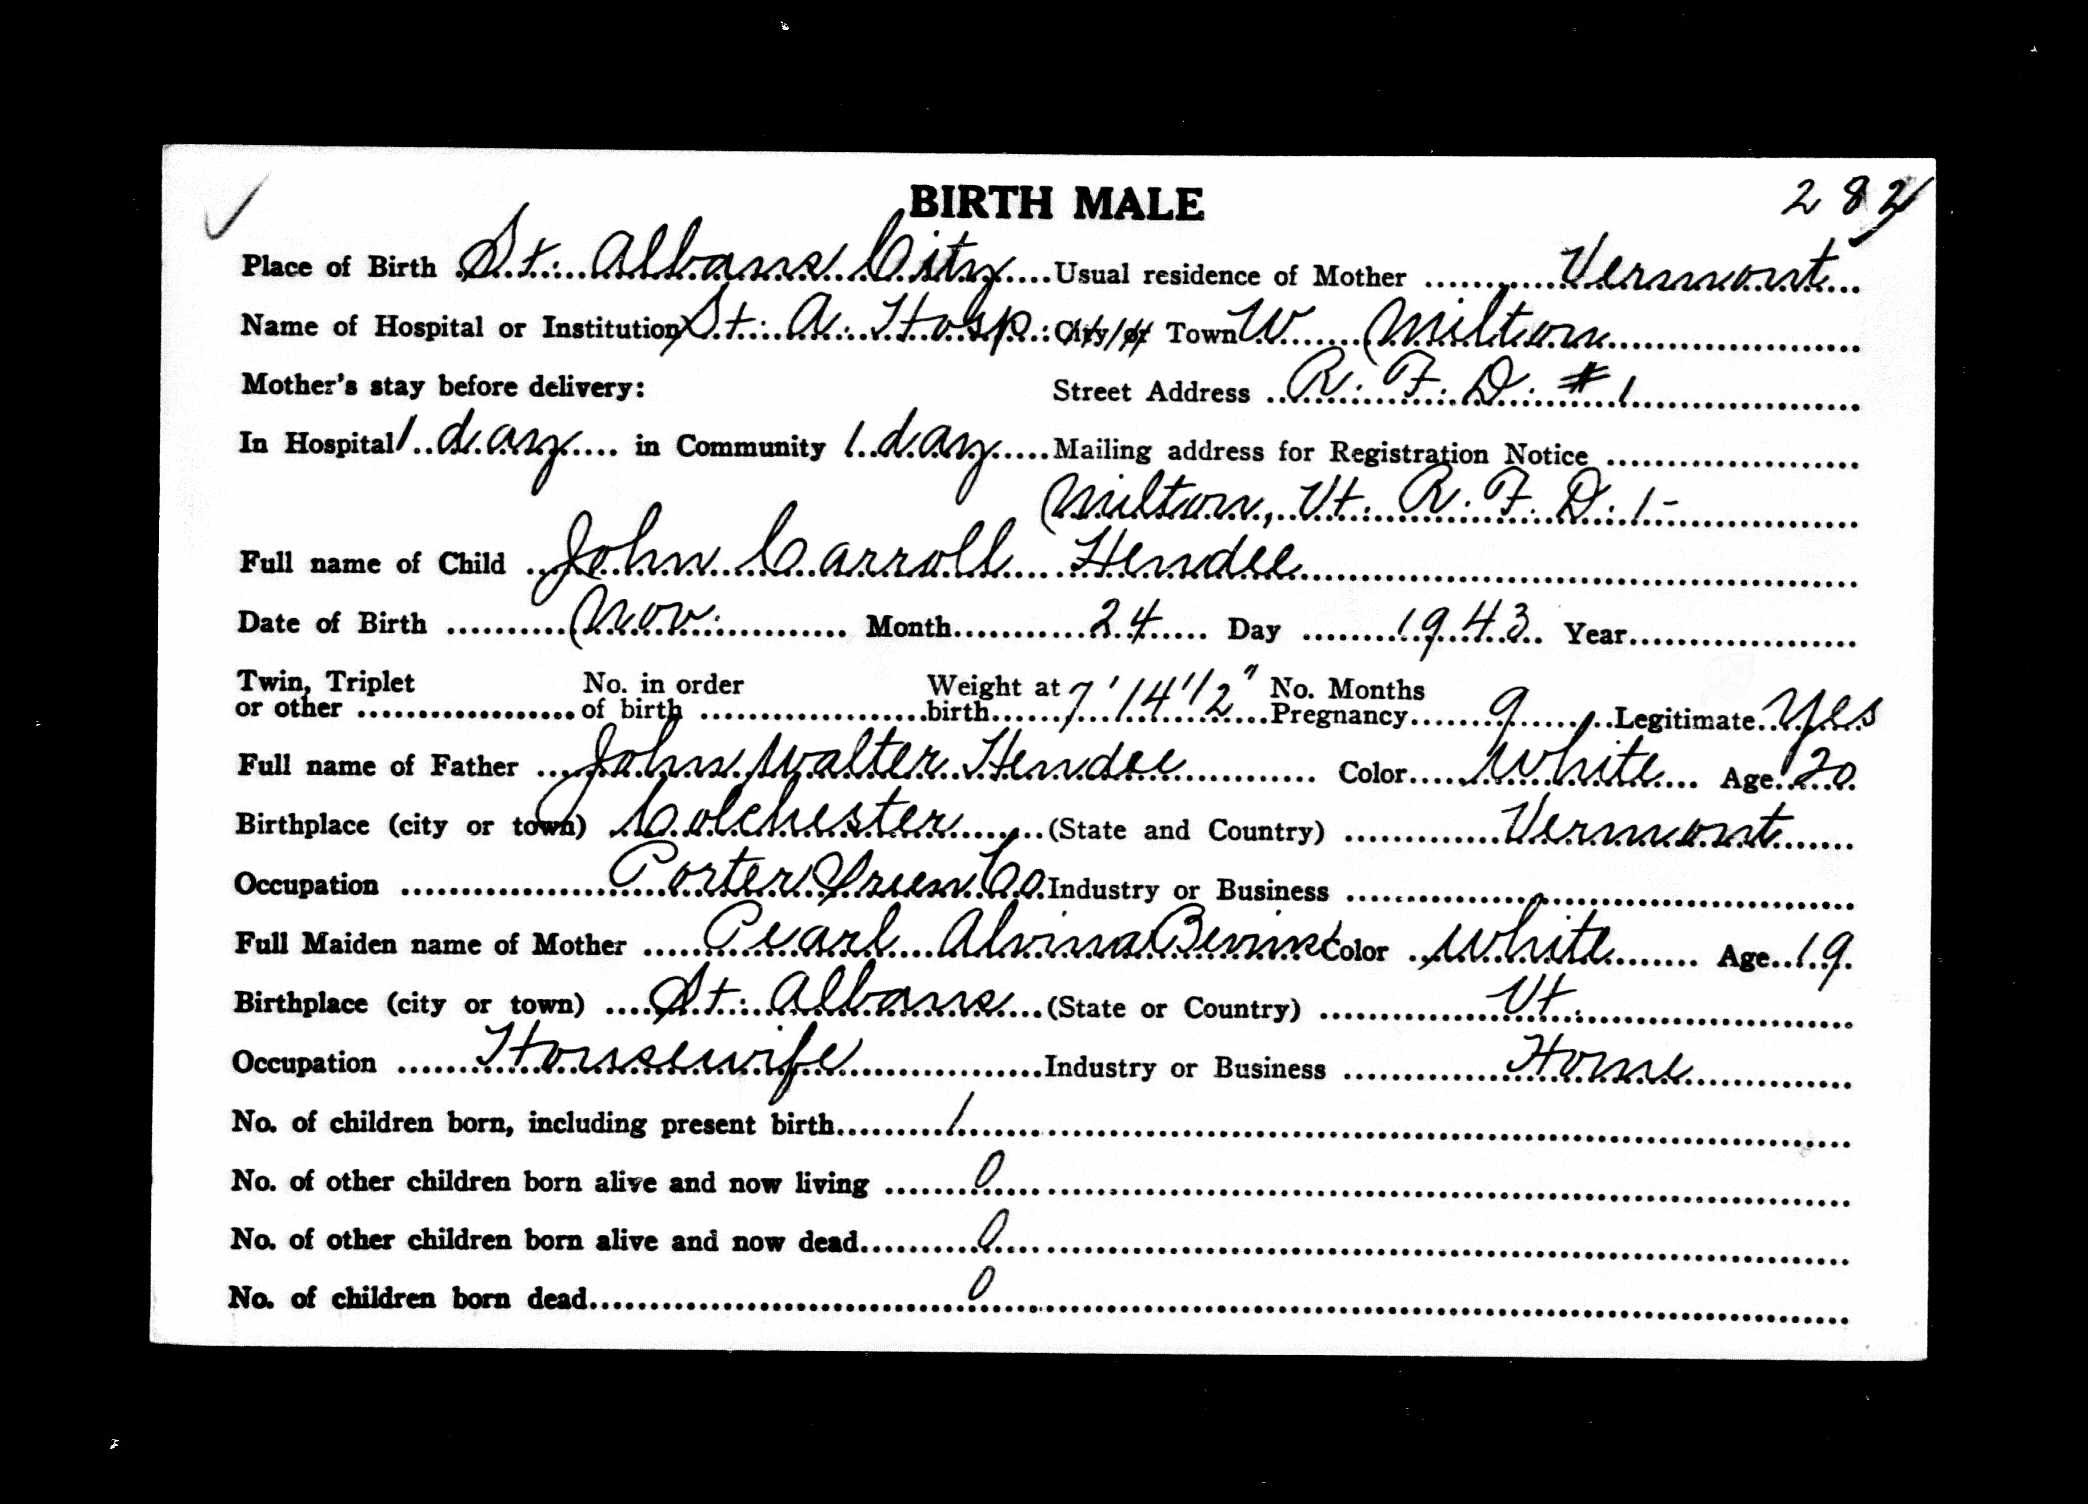 BIRTH MALE 282
Place of Birth St. Albans City Usual residence of Mother Vermont
Name of Hospital or Institution St. A. Hosp. City or Town W. Milton
Mother's stay before delivery: Street Address R. F. D. # 1
In Hospital 1 day in Community 1 day Mailing address for Registration Notice
Milton, Vt. R. F. D. 1-
Full name of Child John Carroll Hendee
Date of Birth Nov. Month 24 Day 1943 Year
Twin, Triplet No. in order Weight at 7' 14 1/2" No. Months
or other of birth birth Pregnancy 9 Legitimate Yes
Full name of Father John Walter Hendee Color White Age 20
Birthplace (city or town) Colchester (State and Country) Vermont
Occupation Porter Co. Industry or Business
Full Maiden name of Mother Pearl Alvina Bevins Color White Age 19
Birthplace (city or town) St. Albans (State or Country) Vt.
Occupation Housewife Industry or Business Home
No. of children born, including present birth 1
No. of other children born alive and now living 0
No. of other children born alive and now dead 0
No. of children born dead 0